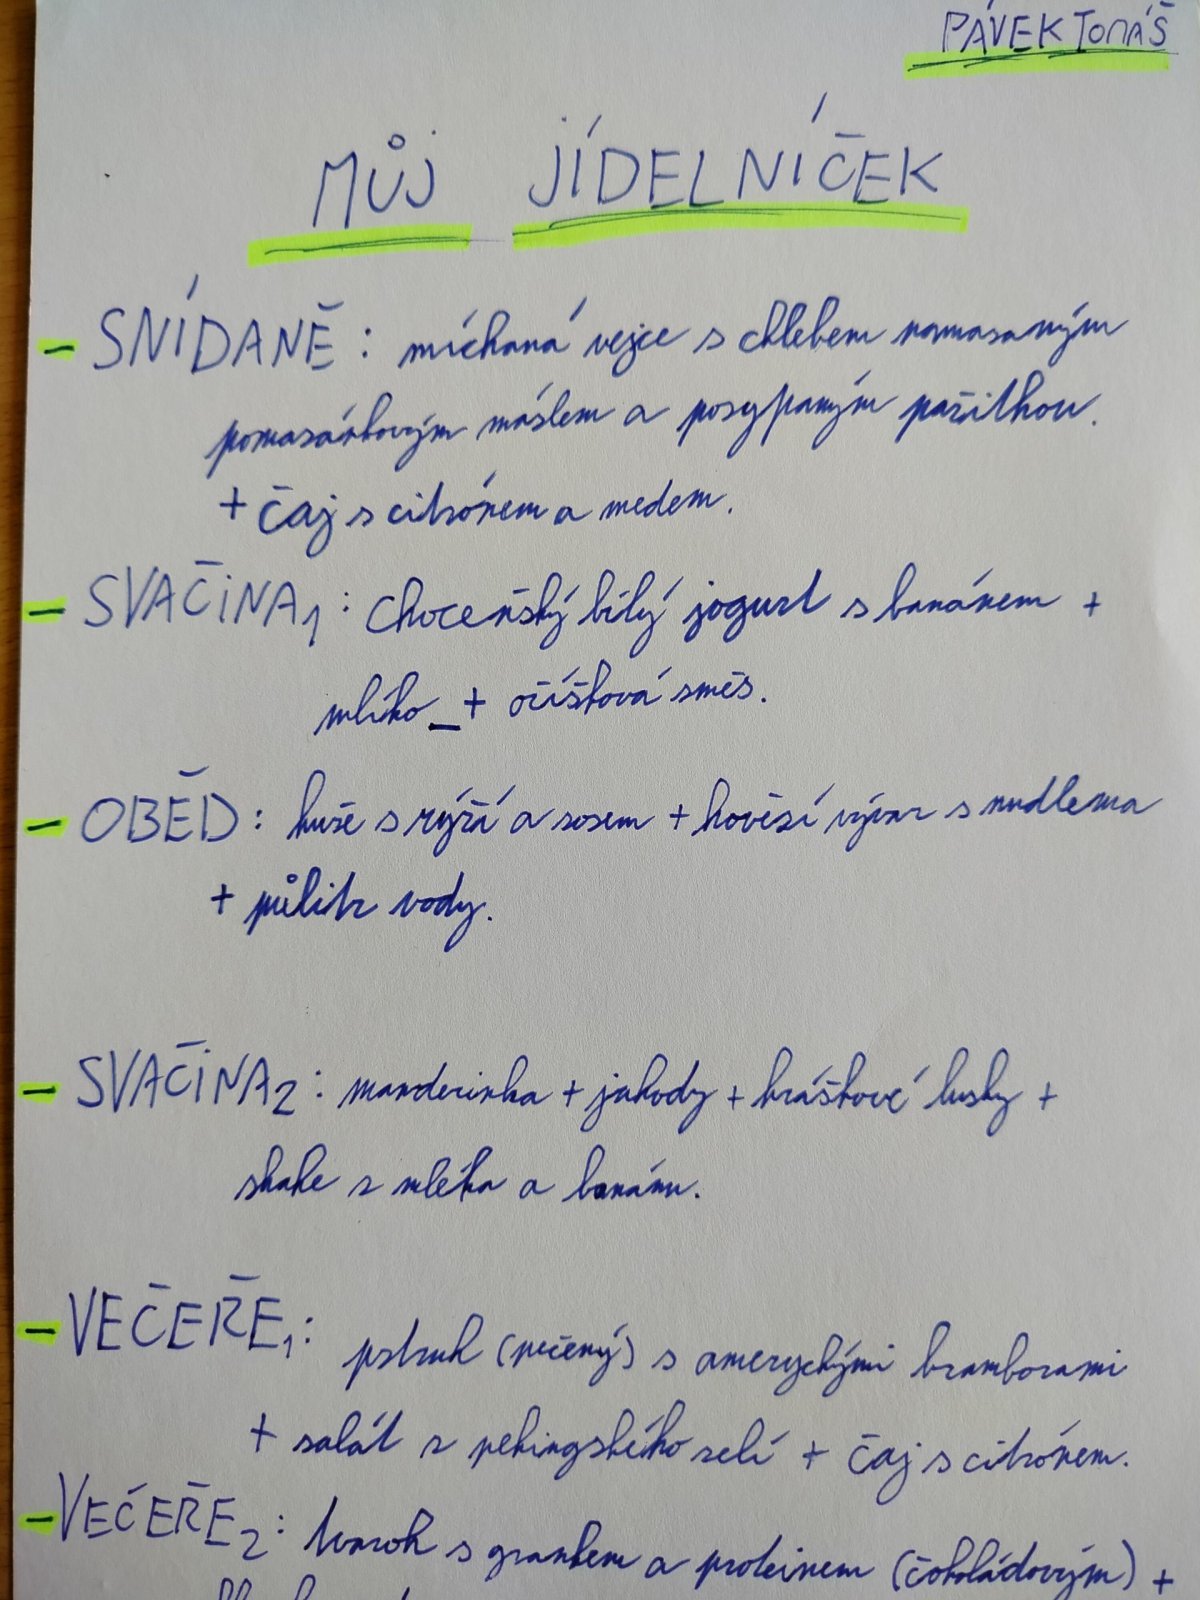 PÁVEK TOMÁŠ
MŮJ JÍDELNÍČEK
- SNÍDANĚ: míchaná vejce s chlebem namasaným
pomazánkovým máslem a posypaným pažitkou.
+ čaj s citrónem a medem.
- SVAČINA1: choceňský bílý jogurt s banánem +
mlíko + oříšková směs.
- OBĚD: kuře s rýží a sosem + hovězí vývar s nudlema
+ půlitr vody.
- SVAČINA2: manderinka + jahody + hráškové lusky +
shake z mléka a banánu.
- VEČEŘE1: pstruh (pečený) s amerychými bramborami
+ salát z pekingského zelí + čaj s citrónem.
- VEČEŘE2: tvaroh s grankem a proteinem (čokoládovým) +